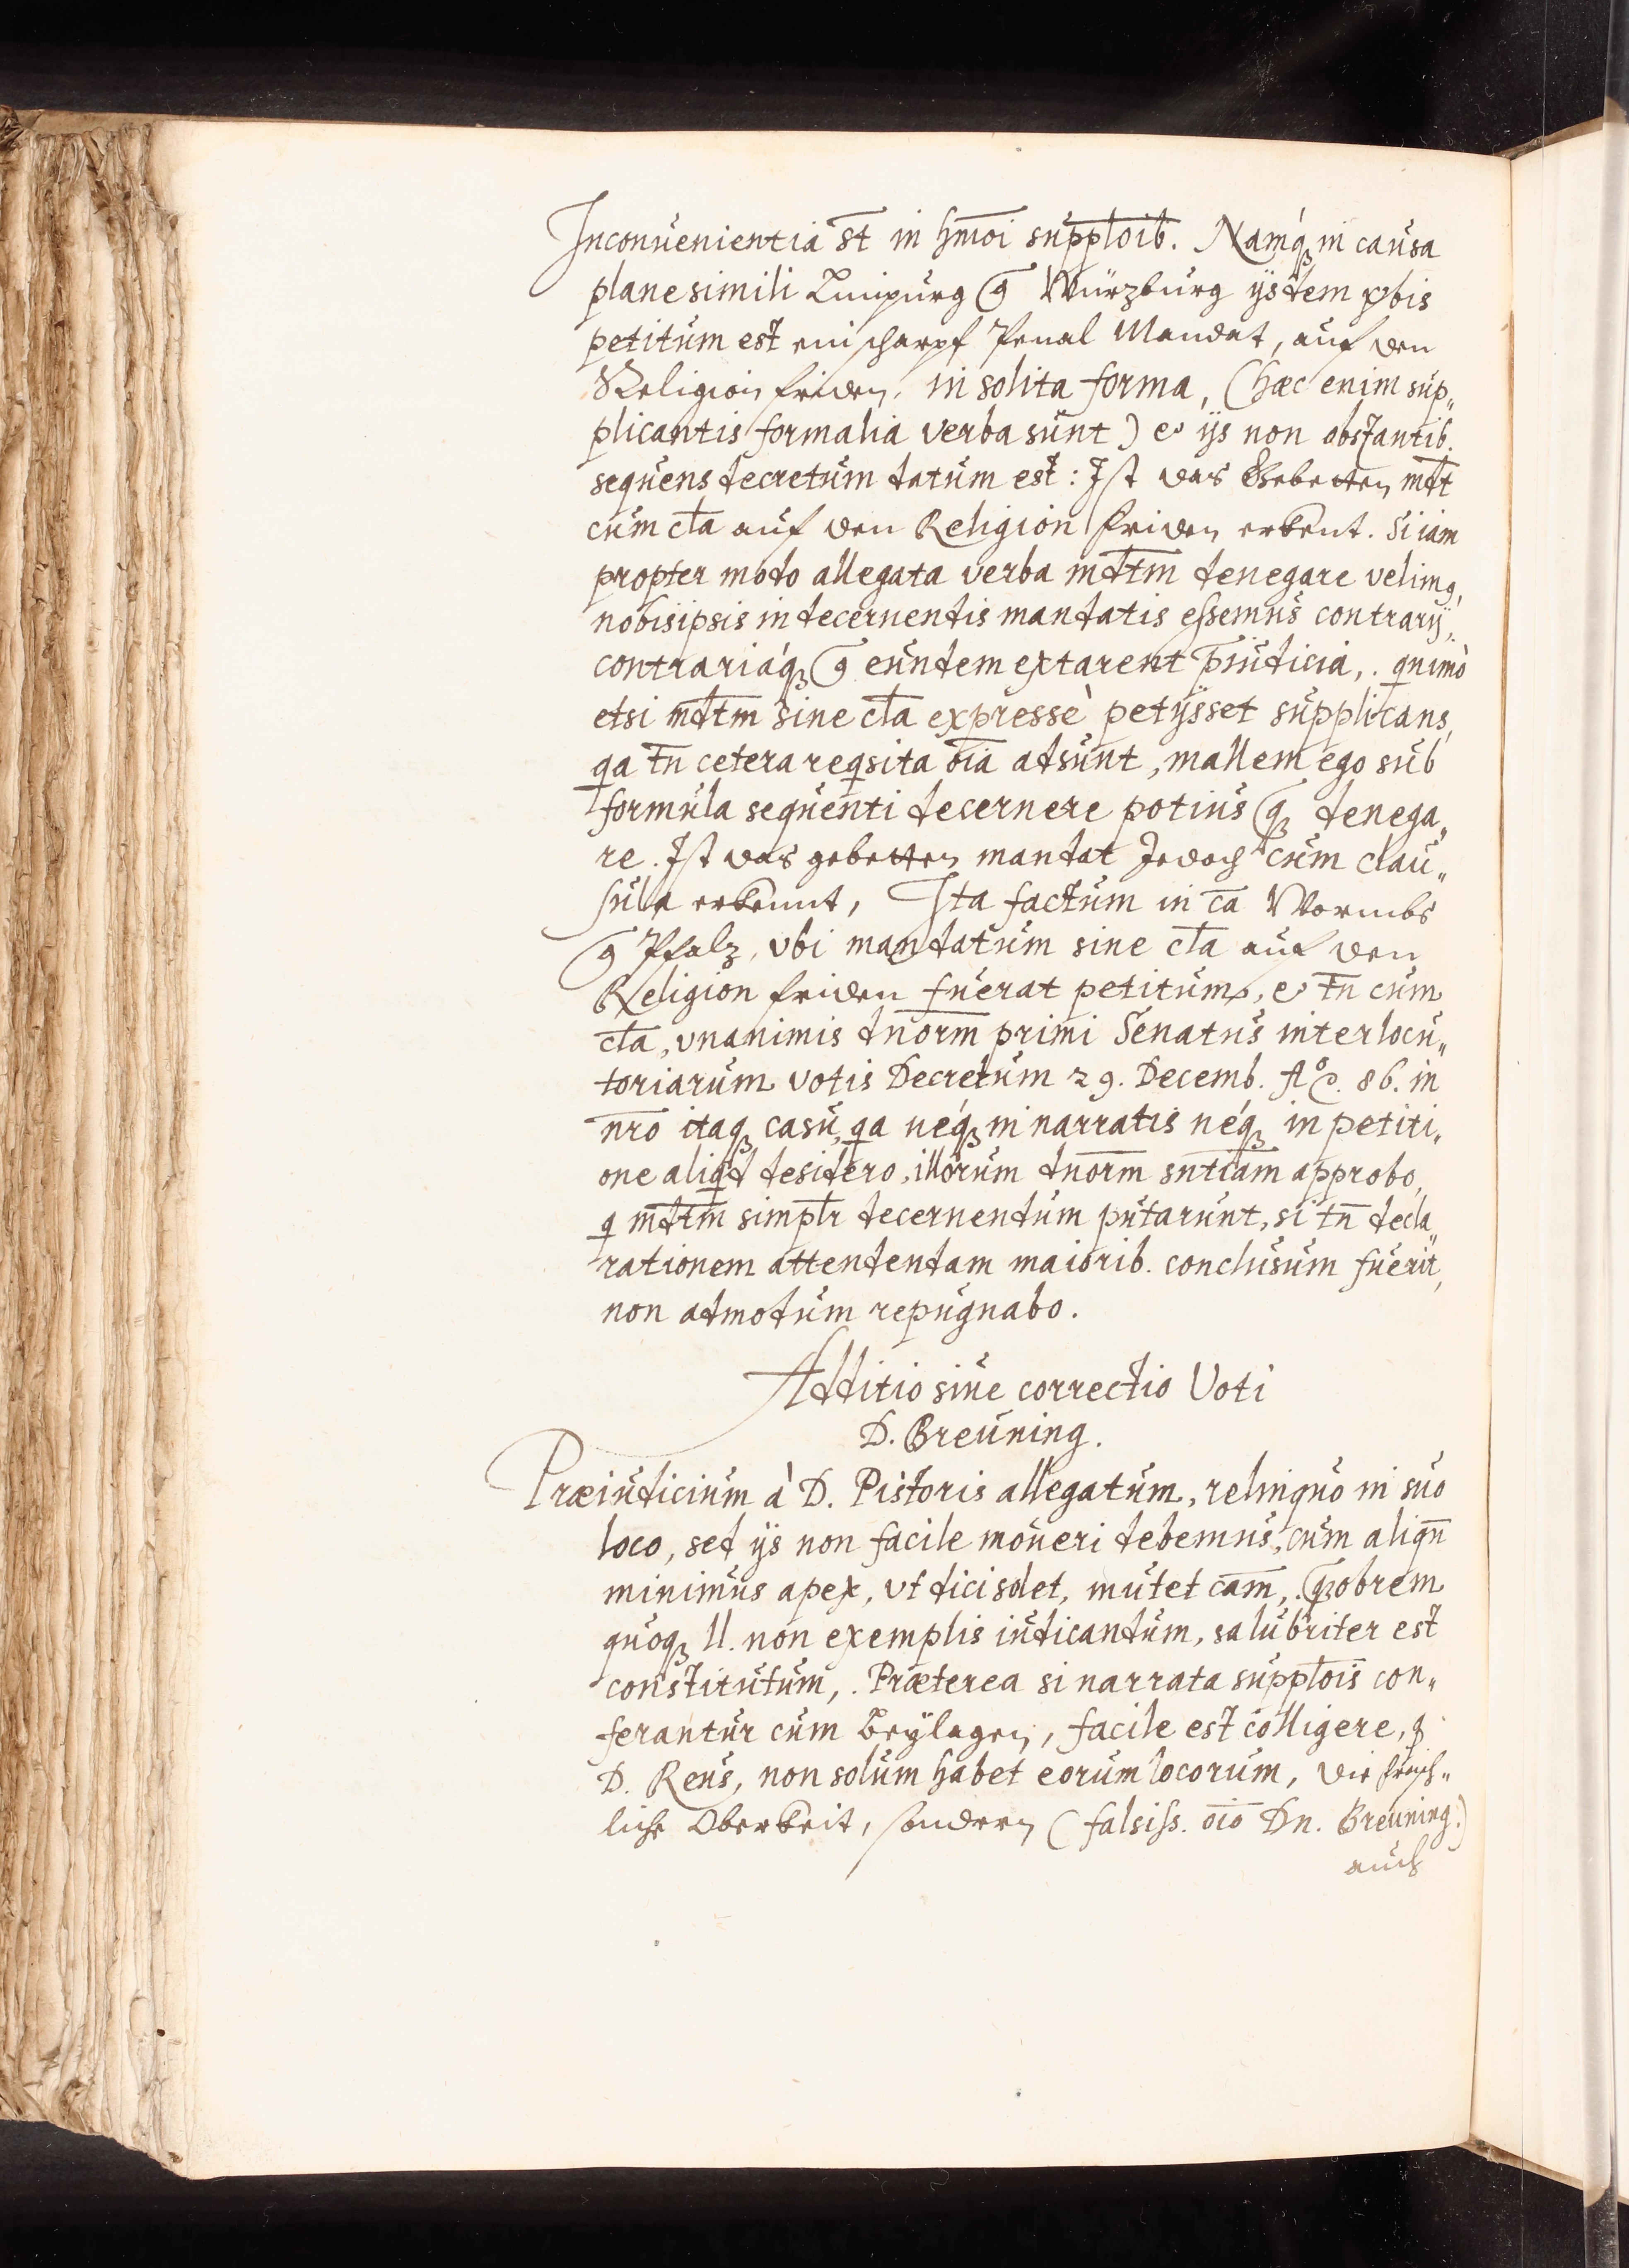 Inconuenientia st̄ in hm̄oi supp̄loīb. Namq́ꝫ in causa
plane simili Limpurg ꝯ Würzburg ijsdem v̄bis
petitum est ein scharpf Penal Mandat, auf den
Religion friden, in solita forma, (hæc enim sup„
plicantis formalia verba sunt) et ijs non obstantib.
sequens decretum datum est: Ist das Gebetten mdt̄
cum cl̄a auf den Religion friden erkent. Si iam
propter modo allegata verba mdt̄m denegare velimꝰ,
nobis ipsis in decernendis mandatis essemus contrarij,
contrariaq́ꝫ ꝯ eundem extarent p̄iudicia,. quimò
etsi mdt̄m sine cl̄a expressè petijsset supplicans,
qa tn̄ cetera reqsita oīa adsunt, mallem ego sub
formula sequenti decernere potius qꝫ denega„
re. Ist das gebetten mandat Jedoch cum clau„
sula erkennt, Ita factum in cā Wormbs
ꝯ Pfalz, vbi mandatum sine cl̄a auf den
Religion friden fuerat petitum, et tn̄ cum
cl̄a, vnanimis dnōrm primi Senatus interlocu„
toriarum votis Decretum 29. Decemb. Aō. 86. in
nr̄o itaqꝫ casu, qa neq́ꝫ in narratis neq́ꝫ in petiti„
one aliqd desidero, illorum dnōrm snt̄iam approbo,
q mdt̄m simplr̄ decernendum putarunt, si tn̄ decla„
rationem attendendam maiorib. conclusum fuerit,
non admodum repugnabo.
Additio siue correctio Voti
D. Breuning.
Præiudicium à D. Pistoris allegatum, relinquo in suo
loco, sed ijs non facile moueri debemus, cum aliqn̄
minimus apex, vt dici solet, mutet cām,. qꝫobrem
quoqꝫ ll. non exemplis iudicandum, salubriter est
constitutum,. Præterea si narrata suppl̄oīs con„
ferantur cum Beylagen, facile est colligere, ꝙ
D. Reus, non solum habet eorum locorum, die fraißh„
liche Oberkeit, sondern (falsiss. oīo Dn. Breuning.)
auch